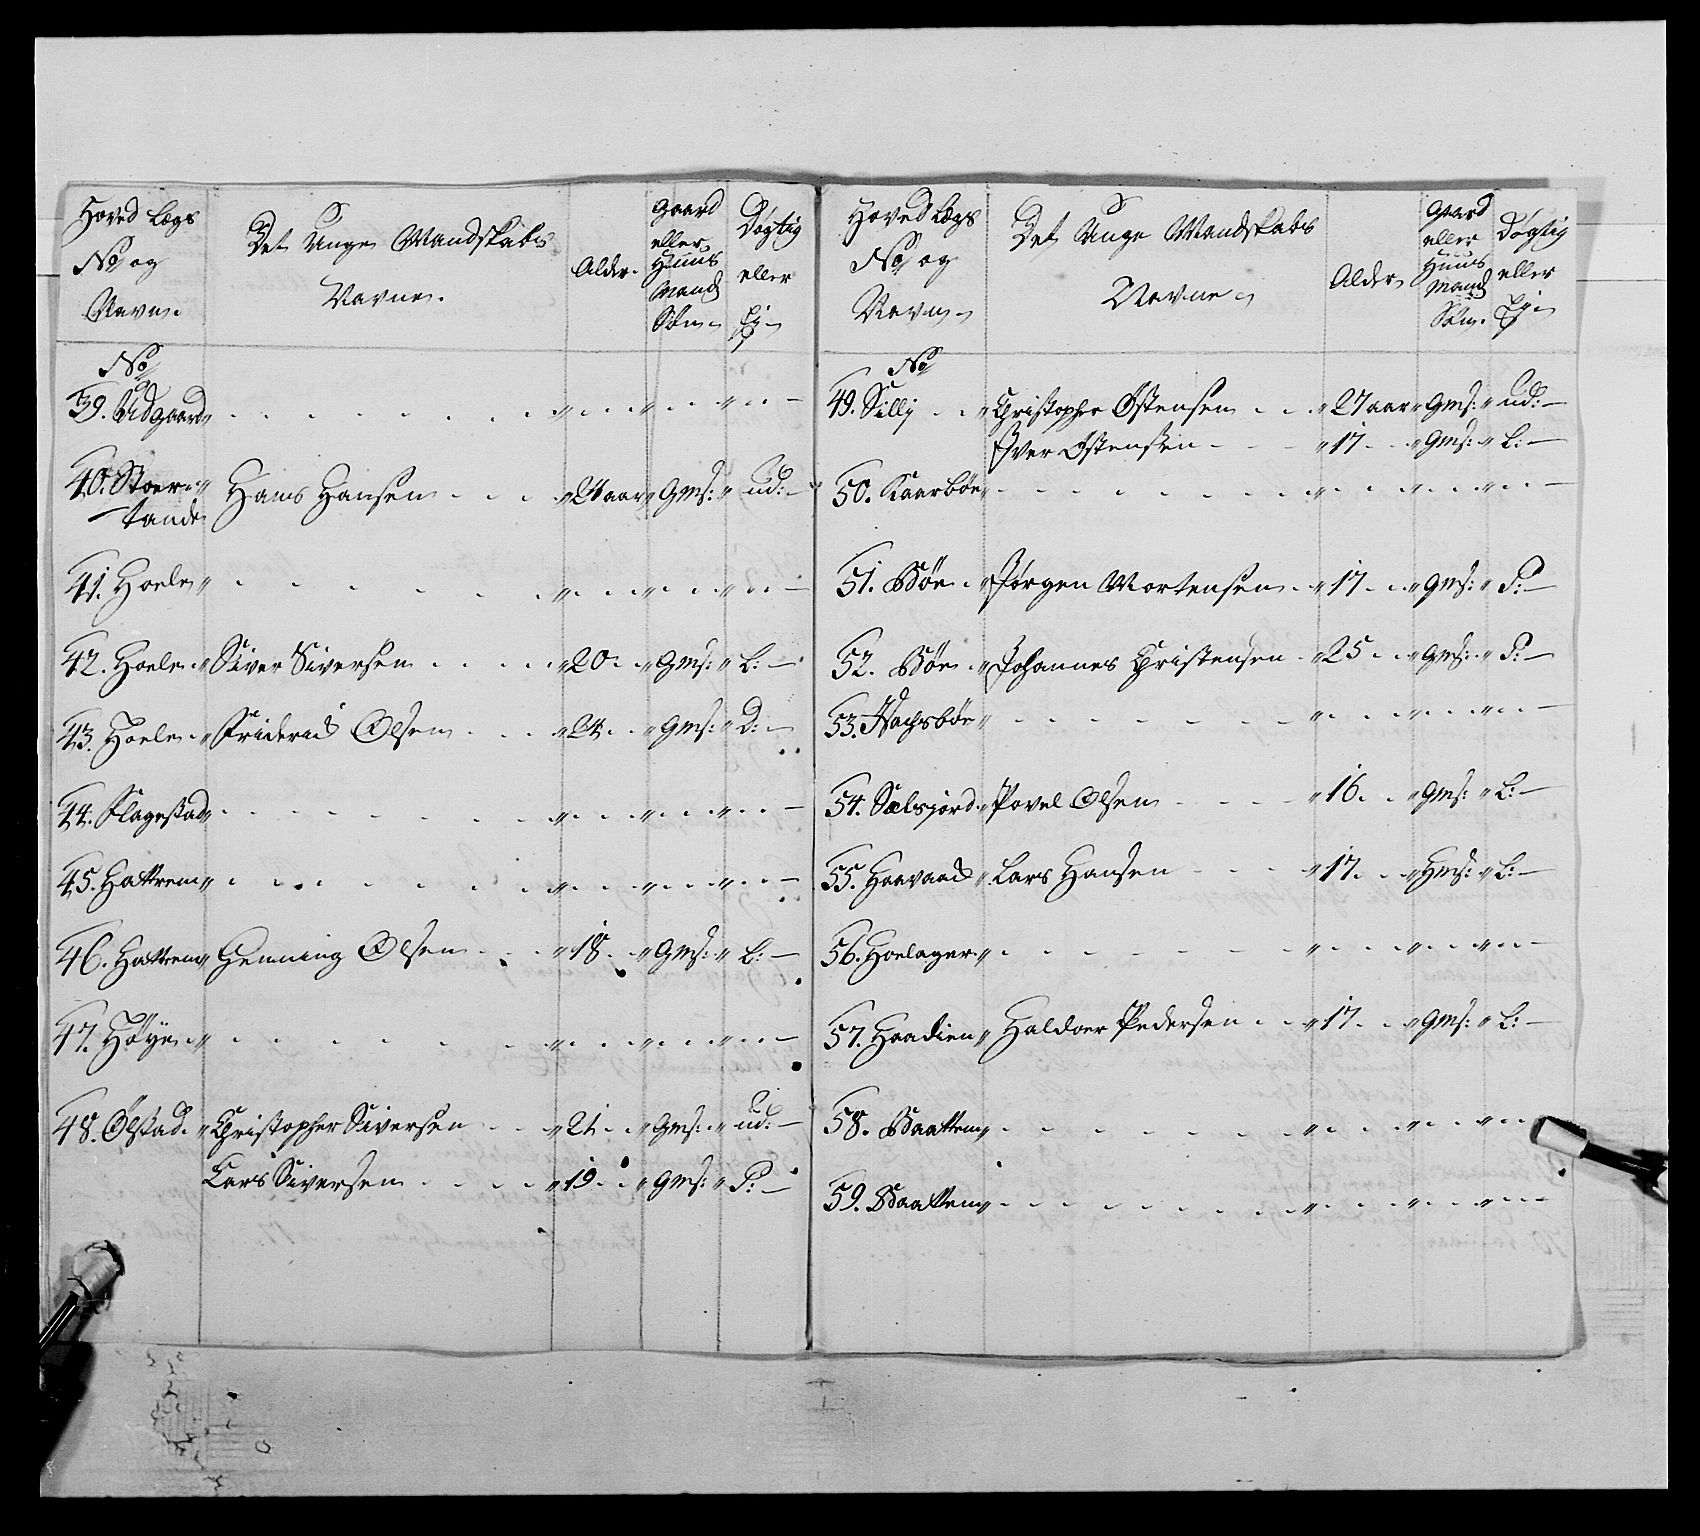 Hoved Lægs
No og
Navn.
Det Unge Mandskabs
Navne.
Alder.
Gaard
eller
Huus
Mands
Søn.
Dygtig
eller
Ej.
No
39. Udgaard
40. Stoer-
tande
Hans Hansen 24 aar Gms: ud:
41. Hoele
42. Hoele Siver Siversen 20 Gms: L:
43. Hoele Friderich Olsen 24 Gms: D:
44. Flagestad
45. Hattrem
46. Hattrem Henning Olsen 18 Gms: L:
47. Høye
48. Ølstad Christopher Siversen 21 Gms: ud:
Lars Siversen 19 Gms: P:
Hoved Lægs
No og
Navn
Det Unge Mandskabs
Navne
Alder
Gaard
eller
Huus
Mands
Søn.
Dygtig
eller
Ej.
No
49. Sillj Christopher Ostensen 27 aar Gms: ud:
Iver Ostensen 17 Gms: L:
50. Kaarbøe
51. Bøe Jørgen Mortensen 17 Gms: P:
52. Bøe Johannes Christensen 25 Gms: P:
53. Hachsbøe
54. Sælsjord Povel Olsen 16 Gms: L:
55. Haavaad Lars Hansen 17 Hms: L:
56. Hoelager
57. Haadien Haldoer Pedersen 17 Gms: L:
58. Baattem
59. Baattem